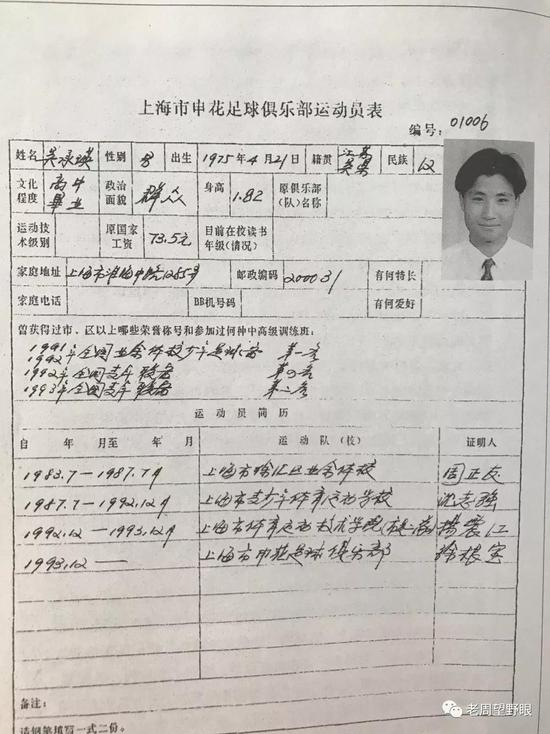 上海市申花足球俱乐部运动员表
编号：01006
姓名 吴承瑛 性别 男 出生 1975年4月21日 籍贯 江苏吴县 民族 汉
文化程度 高中毕业 政治面貌 群众 身高 1.82 原俱乐部(队)名称
运动技术级别 原国家工资 73.5元 目前在校读书年级(情况)
家庭地址 上海市淮海中路1285号 邮政编码 200031 有何特长
家庭电话 BB机号码 有何爱好
曾获得过市、区以上哪些荣誉称号和参加过何种中高级训练班：
1991年
1992年全国业余体校少年足球赛 第一名
1992年全国青年联赛
1993年全国青年联赛
运动员简历
自 年 月至 年 月 运动队(校) 证明人
1983.7—1987.7月 上海市徐汇区业余体校 周正友
1987.7—1992.12月 上海市青少年体育运动学校 沈志强
1992.12—1993.12月 上海市体育运动技术学院
1993.12— 上海市申花足球俱乐部 徐根宝
备注：
请钢笔填写一式二份。
老周望野眼